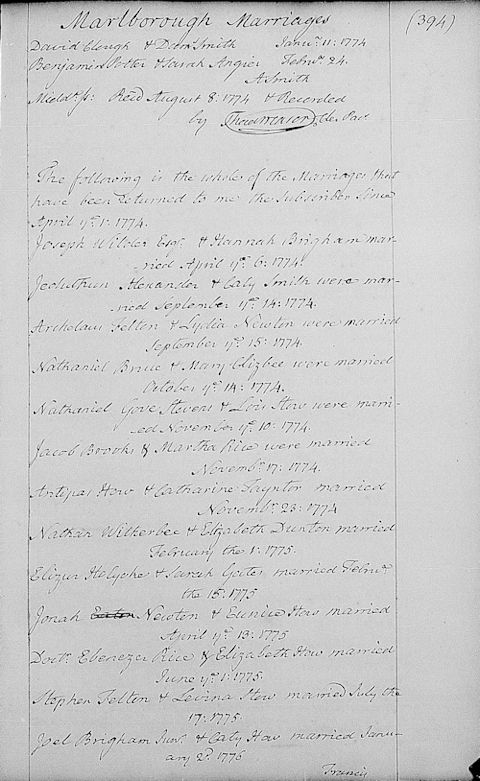 Marlborough Marriages (394)
David Clough & Dam Smith Janry. 11: 1774
Benjamin Potter & Sarah Angier Febry. 24.
A Smith
Middx. ss: Recd August 8: 1774 & Recorded
by Thad Mason Cle. Pac
The following is the whole of the Marriages that
have been returned to me the Subscriber Since
April ye. 1: 1774.
Joseph Wilder Esqr. & Hannah Brigham mar-
ried April ye. 6: 1774.
Jeduthun Alexander & Caty Smith were mar-
ried September ye. 14: 1774.
Archelaus Felton & Lydia Newton were married
September ye. 15: 1774.
Nathaniel Bruce & Mary Clizbee were married
October ye. 14: 1774.
Nathaniel Gove Stevens & Lois How were marri-
ed November ye. 10: 1774.
Jacob Brooks & Martha Rice were married
Novembr. 17: 1774.
Antipas How & Catharine Tayntor married
Novembr. 23: 1774
Nathan Witherbee & Elizabeth Dunton married
February the 1: 1775.
Elizur Holyoke & Sarah Gates married Febry.
the 15: 1775
Jonah Newton & Eunice How married
April ye. 13: 1775
Doctr. Ebenezer Rice & Elizabeth How married
June ye. 1: 1775.
Stephen Felton & Levina How married July the
17: 1775.
Joel Brigham Junr. & Caty How married Janu-
ary 2d. 1776
Francis